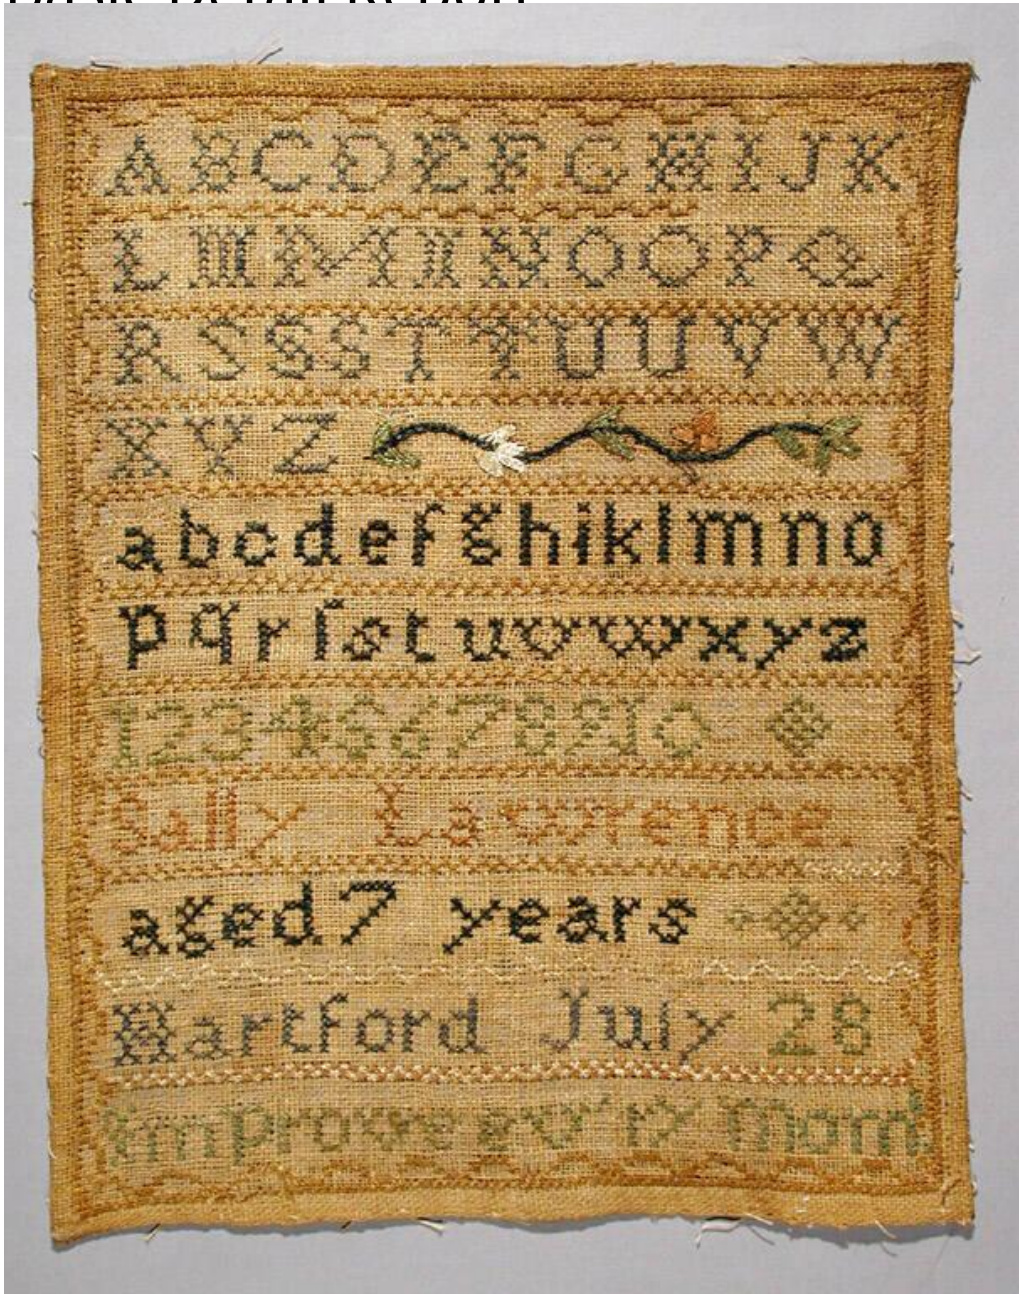 A B C D E F G H I J K
L M M N N O O P Q
R S S S T T U U V W
X Y Z
a b c d e f g h i k l m n o
p q r ſ s t u v w x y z
1 2 3 4 5 6 7 8 9 10
Sally Lawrence.
aged 7 years
Hartford July 28
improve ev'ry mom